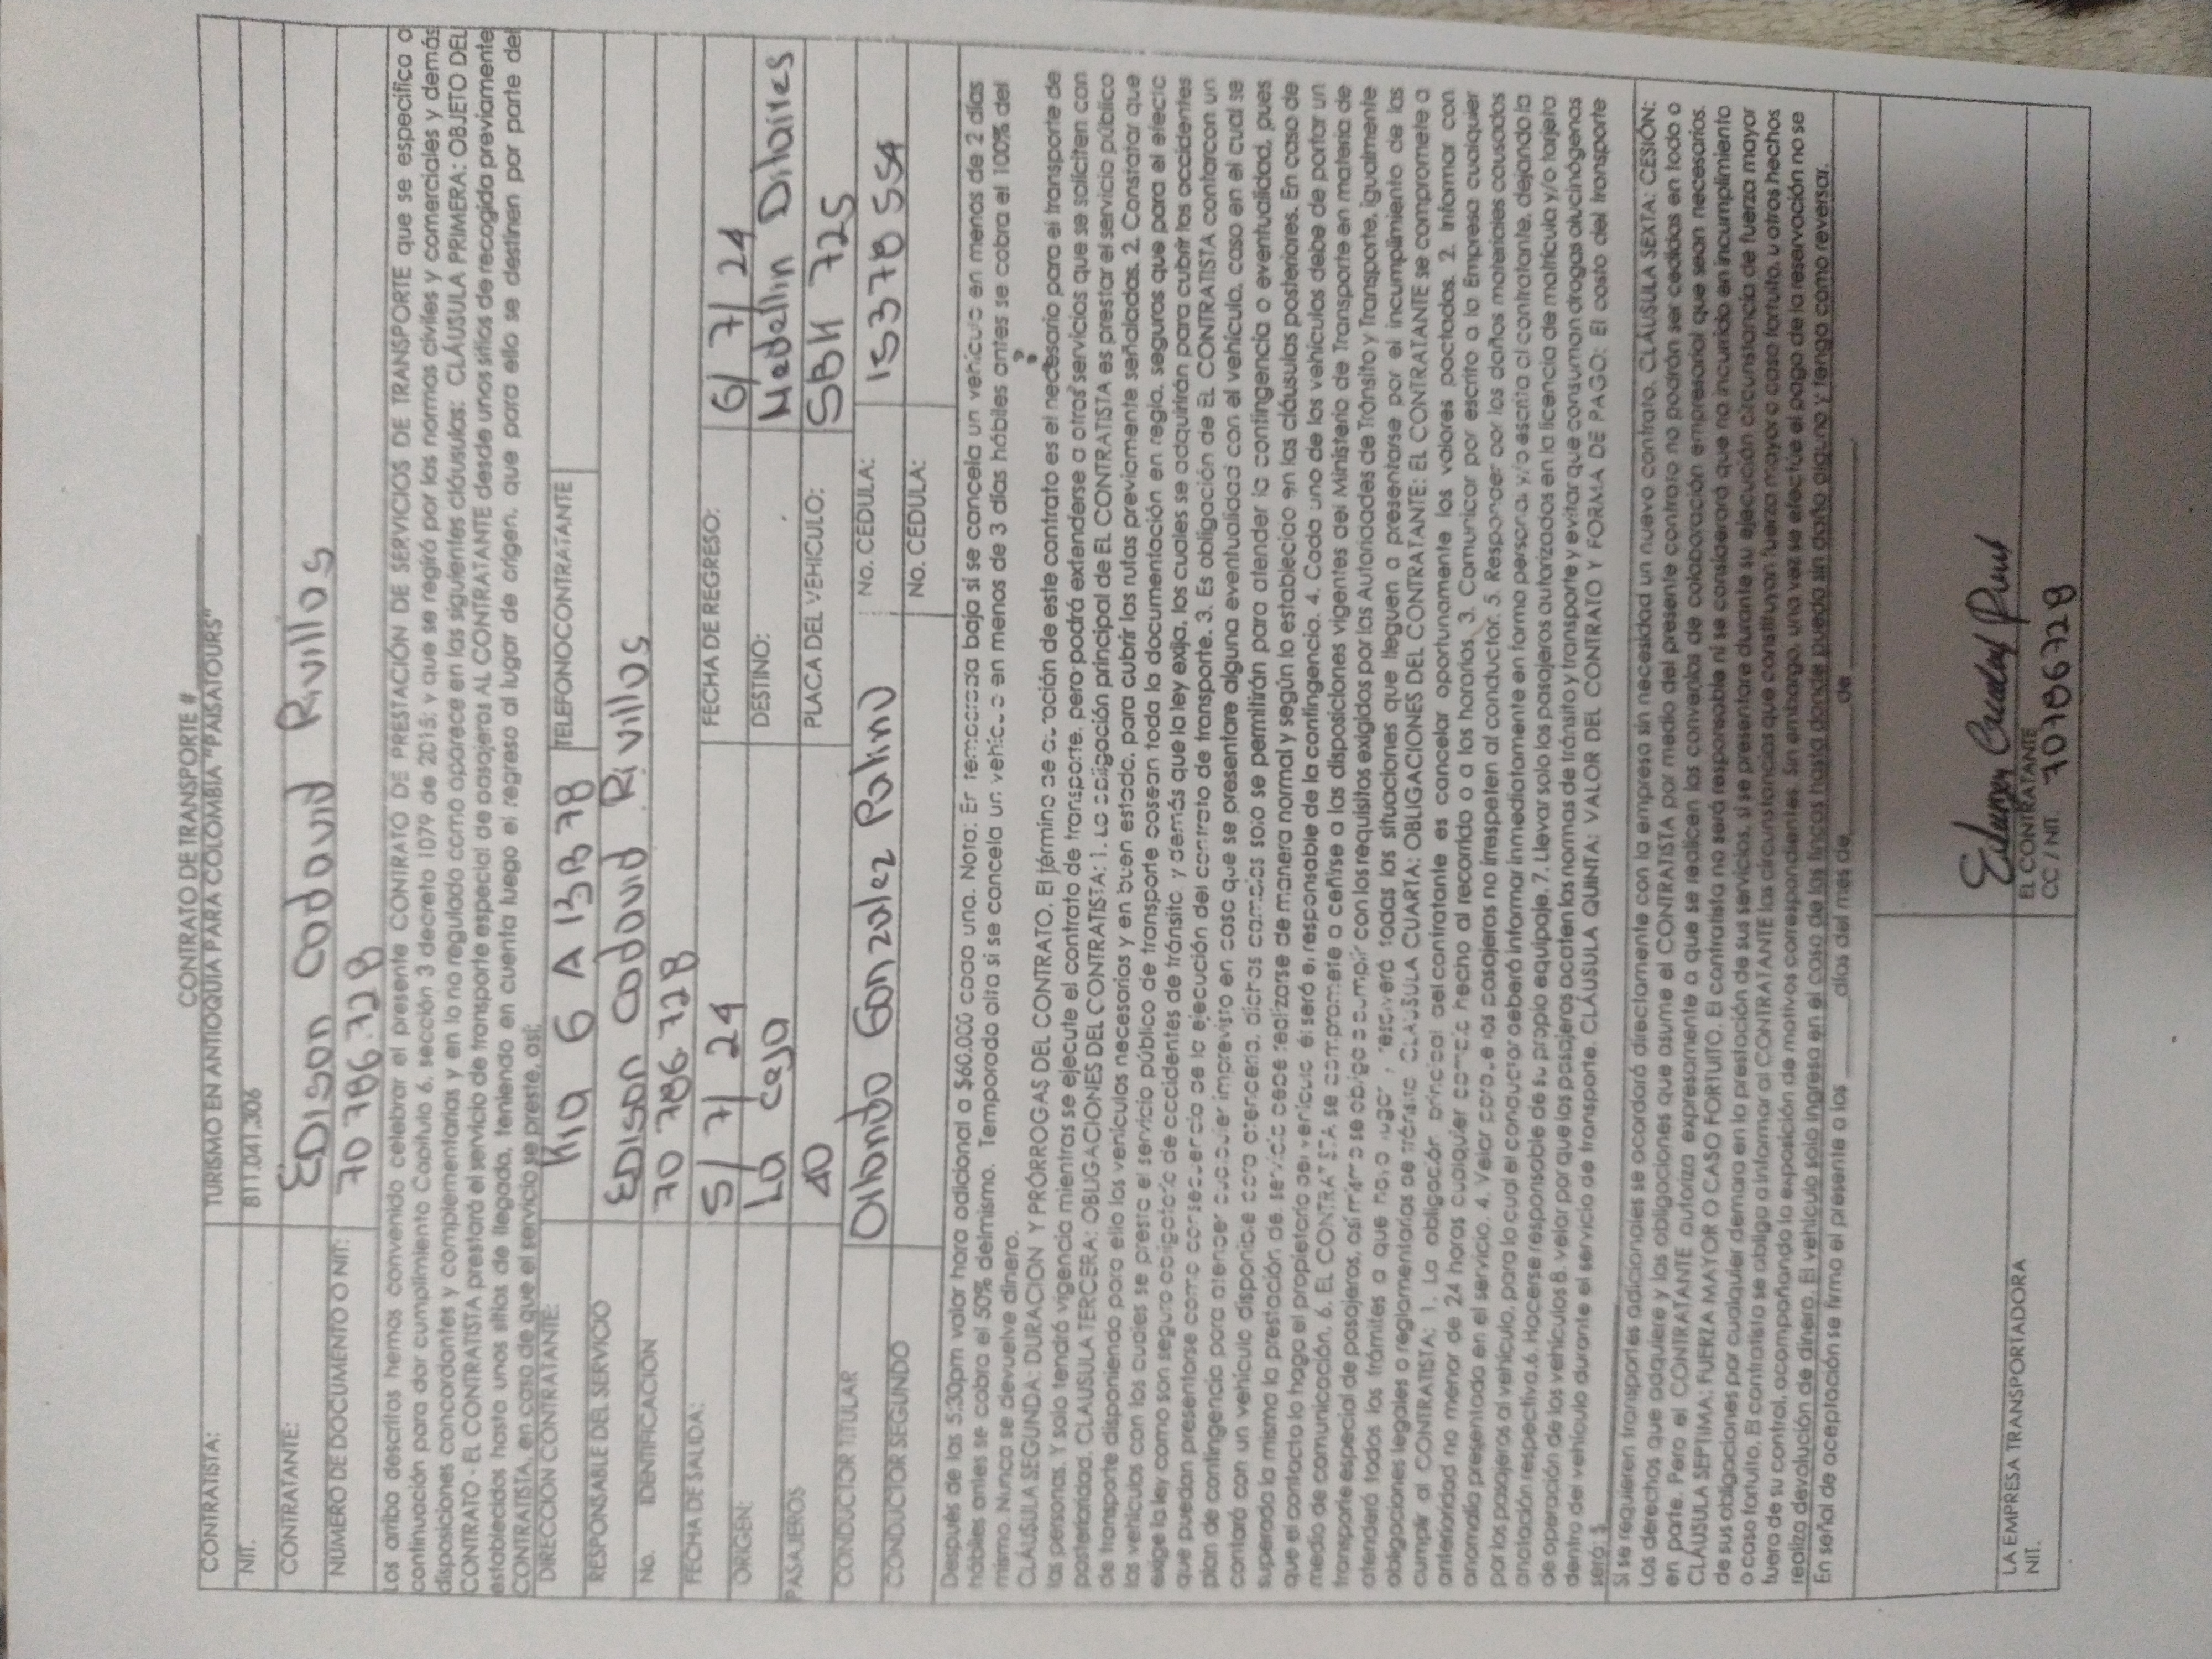 CONTRATO DE TRANSPORTE #
CONTRATISTA: TURISMO EN ANTIOQUIA PARA COLOMBIA "PAISATOURS"
NIT. 811.041.306
CONTRATANTE: EDison Cadavid Rivillos
NUMERO DE DOCUMENTO O NIT: 70 786.728
Los arriba descritos hemos convenido celebrar el presente CONTRATO DE PRESTACIÓN DE SERVICIOS DE TRANSPORTE que se especifica a
continuación para dar cumplimiento Capitulo 6, sección 3 decreto 1079 de 2015; y que se regirá por las normas civiles y comerciales y demás
disposiciones concordantes y complementarias y en lo no regulado como aparece en las siguientes cláusulas: CLÁUSULA PRIMERA: OBJETO DEL
CONTRATO - EL CONTRATISTA prestará el servicio de transporte especial de pasajeros AL CONTRATANTE desde unos sitios de recogida previamente
establecidos hasta unos sitios de llegada, teniendo en cuenta luego el regreso al lugar de origen, que para ello se destinen por parte del
CONTRATISTA, en caso de que el servicio se preste, así:
DIRECCION CONTRATANTE: Kra 6 A 13B 78 TELEFONOCONTRATANTE
RESPONSABLE DEL SERVICIO EDison Cadavid Rivillos
No. IDENTIFICACION 70 786.728
FECHA DE SALIDA: 5/7/24 FECHA DE REGRESO: 6/7/24
ORIGEN: La ceja DESTINO: Medellin Ditaires
PASAJEROS 40 PLACA DEL VEHICULO: SBK 725
CONDUCTOR TITULAR Orlando Gonzalez Patino No. CEDULA: 15378554
CONDUCTOR SEGUNDO No. CEDULA:
Después de las 5:30pm valor hora adicional a $60.000 cada una. Nota: En temporada baja si se cancela un vehículo en menos de 2 días
hábiles antes se cobra el 50% delmismo. Temporada alta si se cancela un vehículo en menos de 3 días hábiles antes se cobra el 100% del
mismo. Nunca se devuelve dinero.
CLÁUSULA SEGUNDA: DURACION Y PRÓRROGAS DEL CONTRATO. El término de duración de este contrato es el necesario para el transporte de
las personas. Y solo tendrá vigencia mientras se ejecute el contrato de transporte, pero podrá extenderse a otros servicios que se soliciten con
posterioridad. CLAUSULA TERCERA: OBLIGACIONES DEL CONTRATISTA: 1. La obligación principal de EL CONTRATISTA es prestar el servicio público
de transporte disponiendo para ello los vehículos necesarios y en buen estado, para cubrir las rutas previamente señaladas. 2. Constatar que
los vehículos con los cuales se presta el servicio público de transporte posean toda la documentación en regla, seguros que para el efecto
exige la ley como son seguro obligatorio de accidentes de tránsito y demás que la ley exija, los cuales se adquirirán para cubrir los accidentes
que puedan presentarse como consecuencia de la ejecución del contrato de transporte. 3. Es obligación de EL CONTRATISTA contarcon un
plan de contingencia para atender cualquier imprevisto en caso que se presentare alguna eventualidad con el vehículo, caso en el cual se
contará con un vehículo disponible para atenderla, dichos cambios solo se permitirán para atender la contingencia o eventualidad, pues
superada la misma la prestación del servicio debe realizarse de manera normal y según lo establecido en las cláusulas posteriores. En caso de
que el contacto lo haga el propietario del vehículo él será el responsable de la contingencia. 4. Cada uno de los vehículos debe de portar un
medio de comunicación. 6. EL CONTRATISTA se compromete a ceñirse a las disposiciones vigentes del Ministerio de Transporte en materia de
transporte especial de pasajeros, así mismo se obliga a cumplir con los requisitos exigidos por las Autoridades de Tránsito y Transporte, igualmente
atenderá todos los trámites a que haya lugar y resolverá todas las situaciones que lleguen a presentarse por el incumplimiento de las
obligaciones legales o reglamentarias de tránsito. CLÁUSULA CUARTA: OBLIGACIONES DEL CONTRATANTE: EL CONTRATANTE se compromete a
cumplir al CONTRATISTA: 1. La obligación principal del contratante es cancelar oportunamente los valores pactados. 2. Informar con
anterioridad no menor de 24 horas cualquier cambio hecho al recorrido o a los horarios. 3. Comunicar por escrito a la Empresa cualquier
anomalía presentada en el servicio. 4. Velar porque los pasajeros no irrespeten al conductor. 5. Responder por los daños materiales causados
por los pasajeros al vehículo, para lo cual el conductor deberá informar inmediatamente en forma personal y/o escrita al contratante, dejando la
anotación respectiva. 6. Hacerse responsable de su propio equipaje. 7. Llevar solo los pasajeros autorizados en la licencia de matrícula y/o tarjeta
de operación de los vehículos 8. velar por que los pasajeros acaten las normas de tránsito y transporte y evitar que consuman drogas alucinógenas
dentro del vehículo durante el servicio de transporte. CLÁUSULA QUINTA: VALOR DEL CONTRATO Y FORMA DE PAGO: El costo del transporte
será $
Si se requieren transportes adicionales se acordará directamente con la empresa sin necesidad un nuevo contrato. CLÁUSULA SEXTA: CESIÓN:
Los derechos que adquiere y las obligaciones que asume el CONTRATISTA por medio del presente contrato no podrán ser cedidas en todo o
en parte. Pero el CONTRATANTE autoriza expresamente a que se realicen los convenios de colaboración empresarial que sean necesarios.
CLÁUSULA SEPTIMA: FUERZA MAYOR O CASO FORTUITO. El contratista no será responsable ni se considerará que ha incurrido en incumplimiento
de sus obligaciones por cualquier demora en la prestación de sus servicios, si se presentare durante su ejecución circunstancia de fuerza mayor
o caso fortuito. El contratista se obliga a informar al CONTRATANTE las circunstancias que constituyan fuerza mayor o caso fortuito, u otros hechos
fuera de su control, acompañando la exposición de motivos correspondientes. Sin embargo, una vez se efectúe el pago de la reservación no se
realiza devolución de dinero. El vehículo solo ingresa en el caso de las fincas hasta donde pueda sin daño alguno y tenga como reversar.
En señal de aceptación se firma el presente a los ______ días del mes de ______ de ______.
LA EMPRESA TRANSPORTADORA
NIT.
EL CONTRATANTE
CC / NIT. 70786728